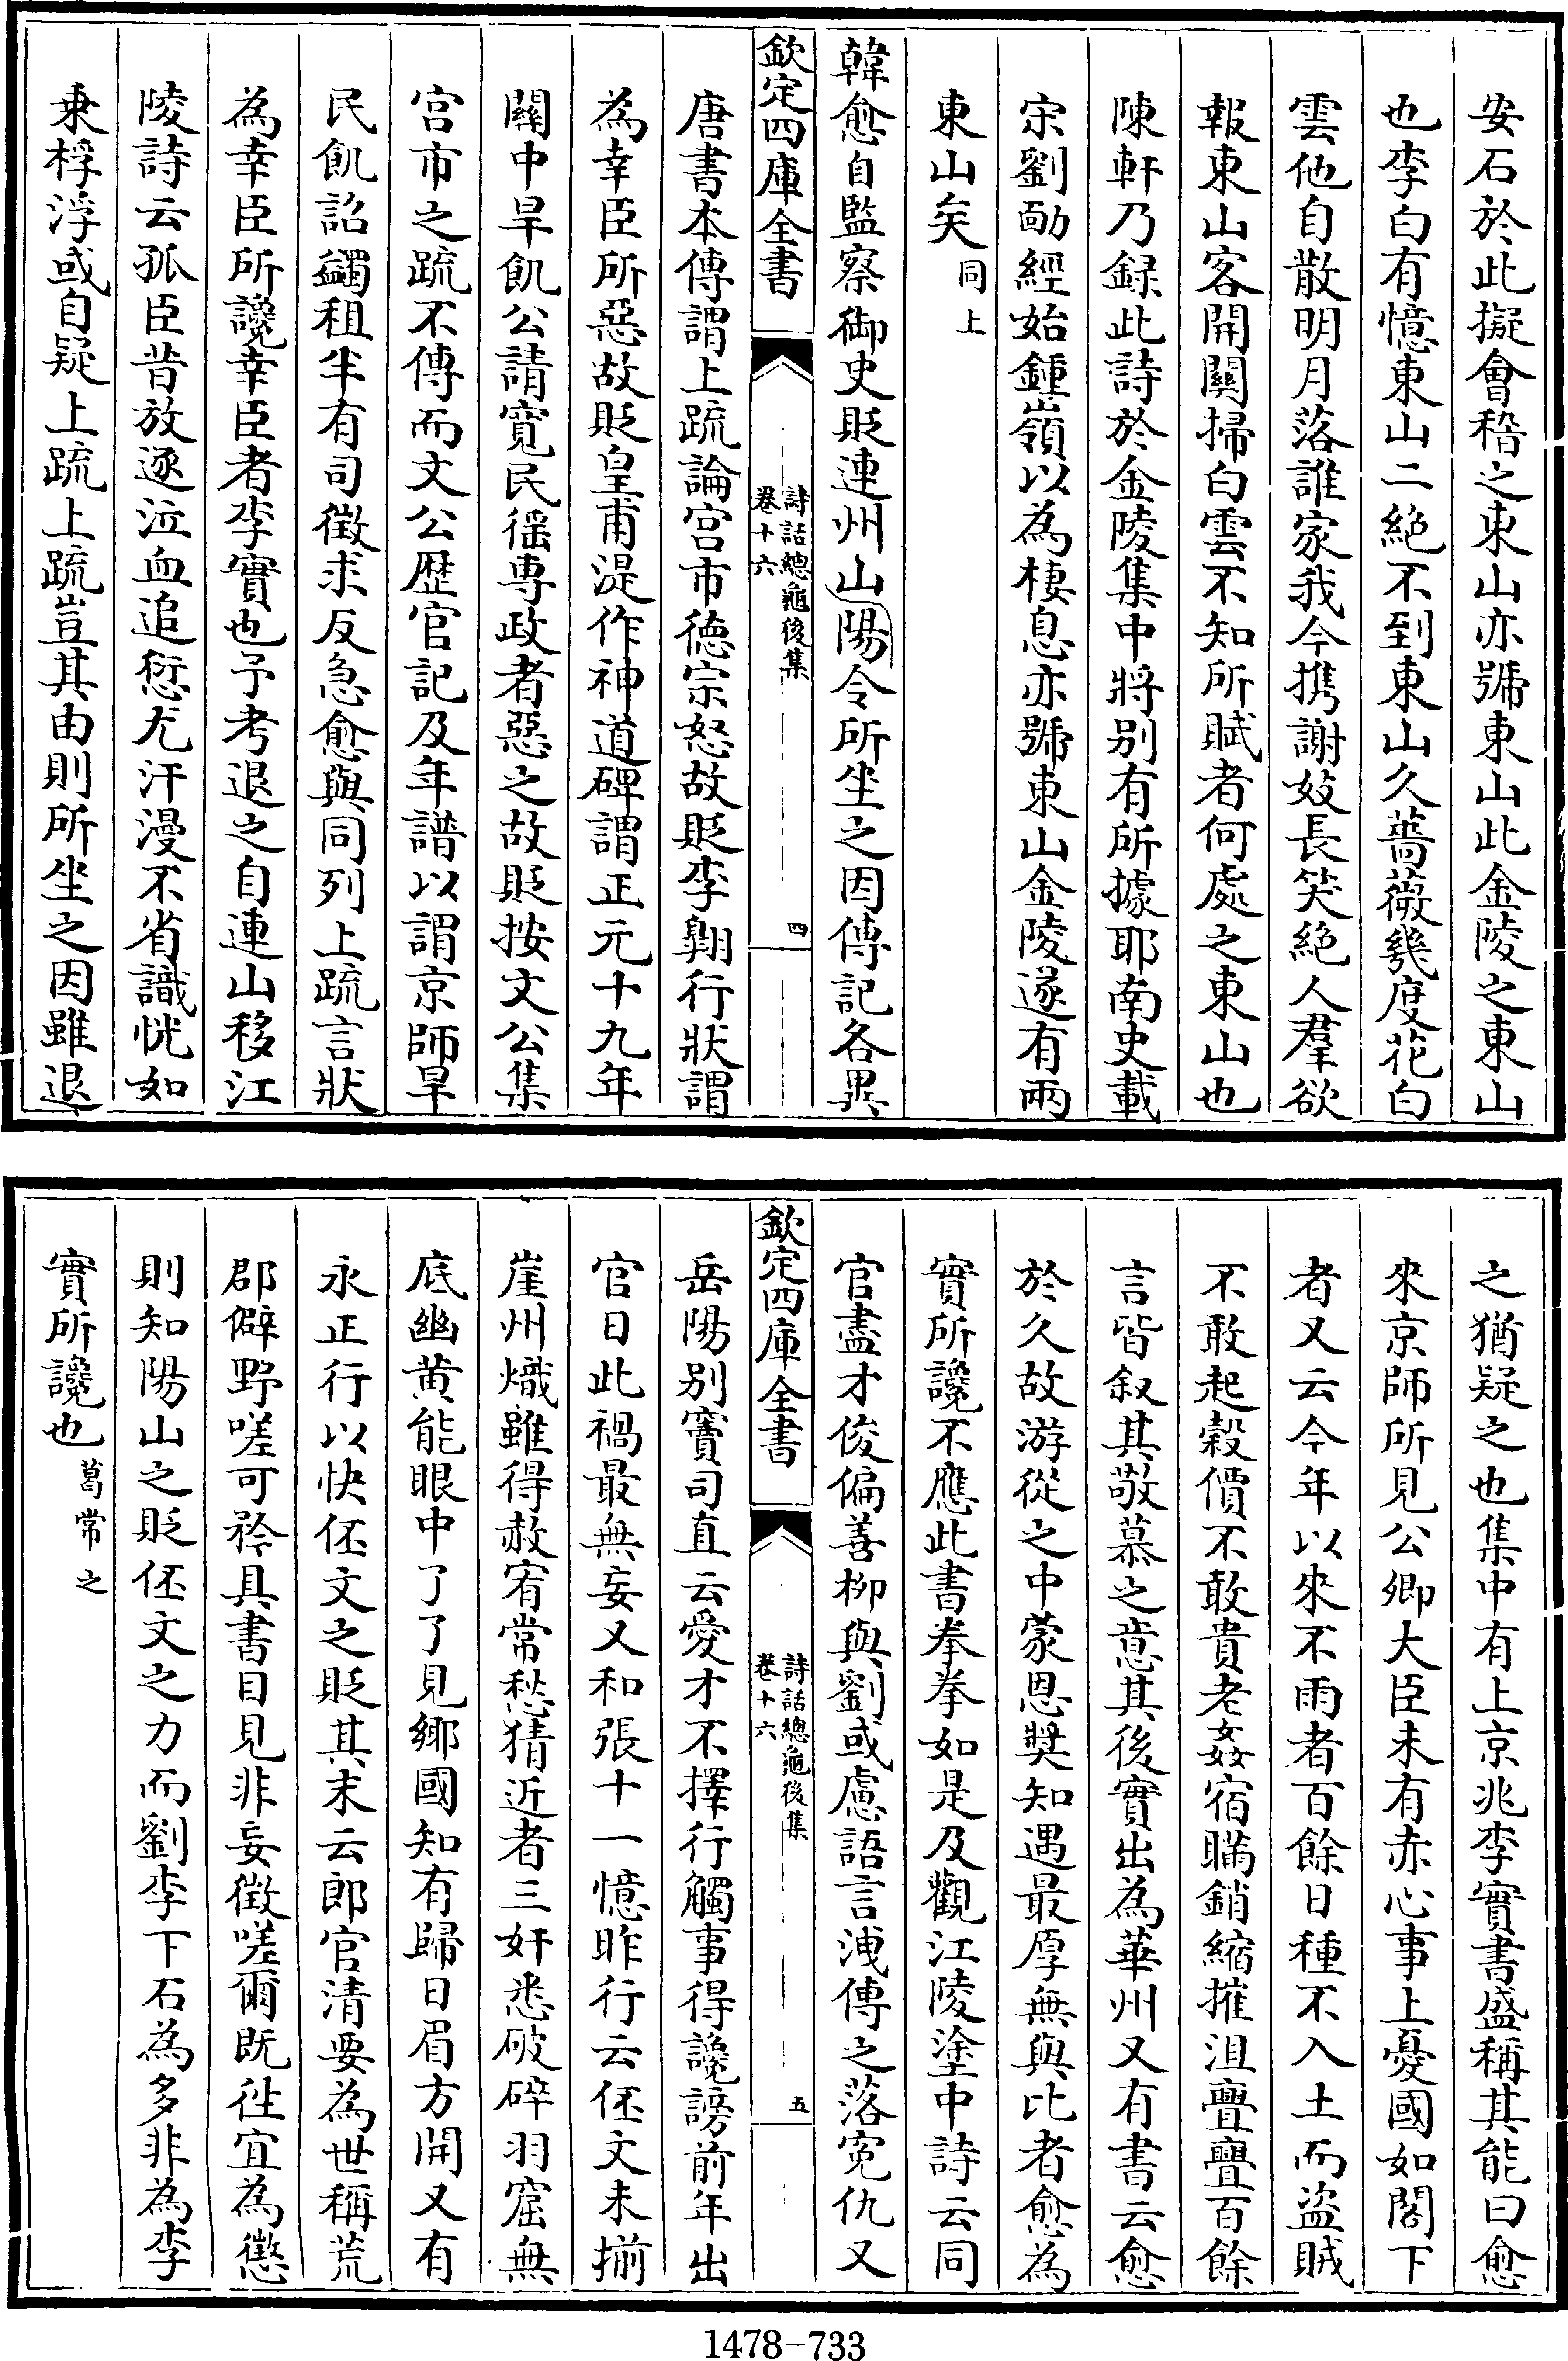 安石於此擬會稽之東山亦號東山此金陵之東山
也李白有憶東山二絶不到東山久薔薇幾度花白
雲他自散明月落誰家我今携謝妓長笑絶人羣欲
報東山客開關掃白雲不知所賦者何處之東山也
陳軒乃録此詩於金陵集中將别有所據耶南史載
宋劉勔經始鍾嶺以為棲息亦號東山金陵遂有兩
東山矣同上
韓愈自監察御史貶連州山陽令所坐之因傳記各異
欽定四庫全書
詩話總龜後集
卷十六
四
唐書本傳謂上疏論宫市德宗怒故貶李翺行狀謂
為幸臣所惡故貶皇甫湜作神道碑謂正元十九年
關中旱飢公請寛民徭專政者惡之故貶按文公集
宫市之疏不傳而文公歴官記及年譜以謂京師旱
民飢詔蠲租半有司徵求反急愈與同列上疏言狀
為幸臣所讒幸臣者李實也予考退之自連山移江
陵詩云孤臣昔放逐泣血追愆尤汗漫不省識恍如
乗桴浮或自疑上疏上疏豈其由則所坐之因雖退
之猶疑之也集中有上京兆李實書盛稱其能曰愈
來京師所見公卿大臣未有赤心事上憂國如閤下
者又云今年以來不雨者百餘日種不入土而盜賊
不敢起穀價不敢貴老姦宿贓銷縮摧沮亹亹百餘
言皆叙其敬慕之意其後實出為華州又有書云愈
於久故游從之中蒙恩奬知遇最厚無與比者愈為
實所讒不應此書拳拳如是及觀江陵塗中詩云同
官盡才俊偏善柳與劉或慮語言洩傳之落寃仇又
欽定四庫全書
詩話總龜後集
卷十六
五
岳陽别竇司直云愛才不擇行觸事得讒謗前年出
官日此禍最無妄又和張十一憶昨行云伾文未揃
崖州熾雖得赦宥常愁猜近者三奸悉破碎羽窟無
底幽黄能眼中了了見鄉國知有歸日眉方開又有
永正行以快伾文之貶其末云郎官清要為世稱荒
郡僻野嗟可矜具書目見非妄徵嗟爾既往宜為懲
則知陽山之貶伾文之力而劉李下石為多非為李
實所讒也葛常之
1478-733